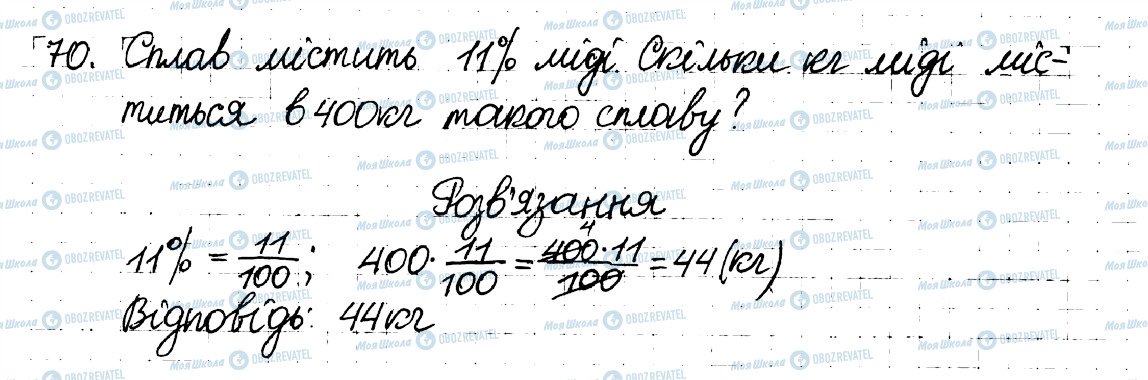 70. Сплав містить 11% міді. Скільки кг міді міс-
титься в 400кг такого сплаву?
Розв'язання
11% = 11/100; 400 · 11/100 = 400·11/100 = 44 (кг)
4
Відповідь: 44кг
МояШкола OBOZREVATEL